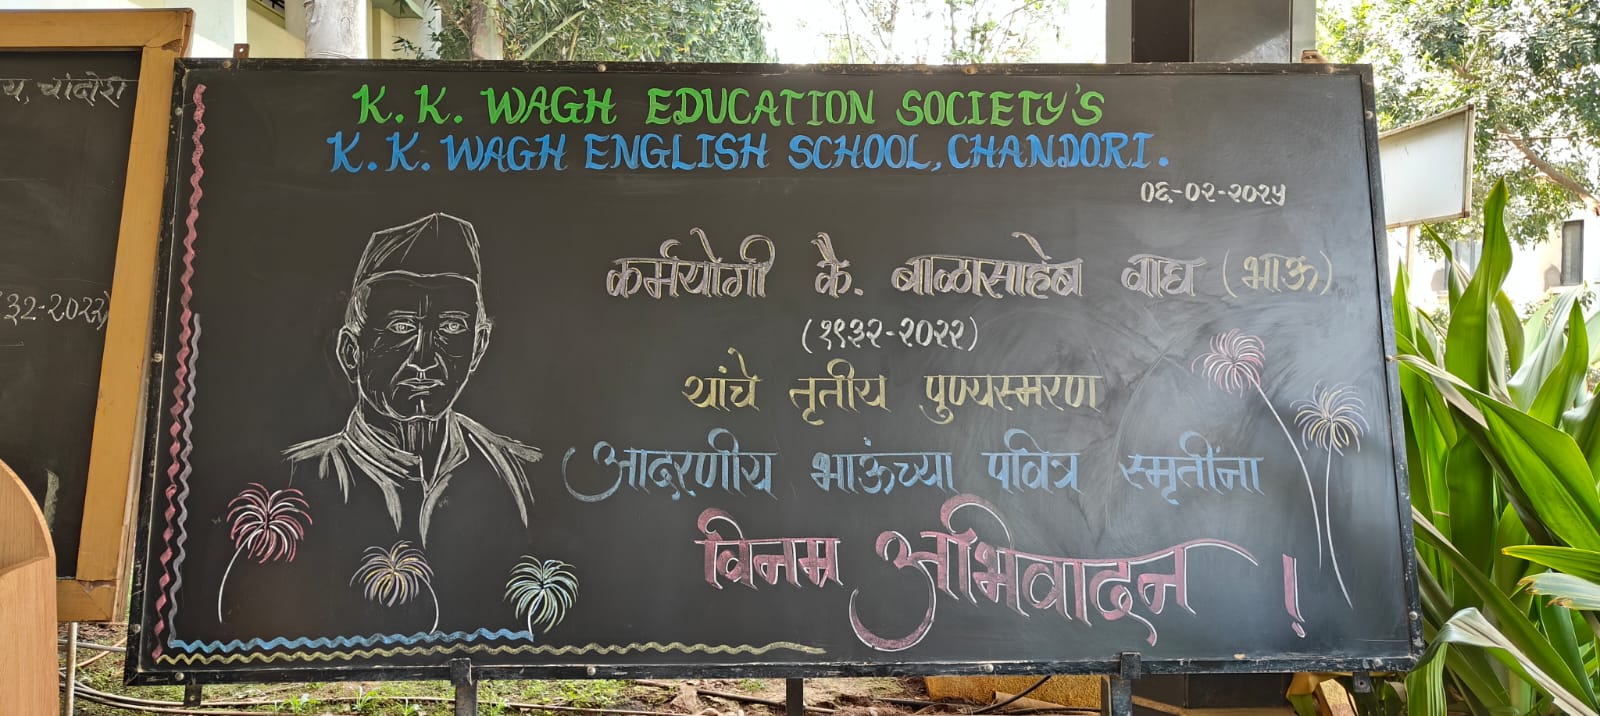 य, चांदोरी
३२-२०२२)
K. K. WAGH EDUCATION SOCIETY'S
K. K. WAGH ENGLISH SCHOOL, CHANDORI.
०६-०२-२०२५
कर्मयोगी कै. बाळासाहेब वाघ (भाऊ)
(१९३२-२०२२)
यांचे तृतीय पुण्यस्मरण
आदरणीय भाऊंच्या पवित्र स्मृतींना
विनम्र अभिवादन !